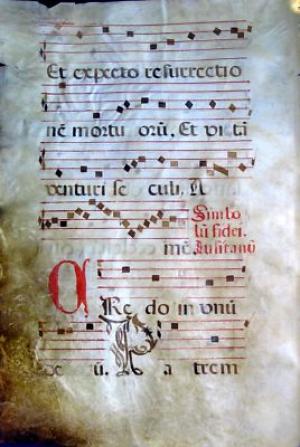 Et expecto resurrectio
nē mortu orū, Et vitā
venturi se culi, A
Simbo
lū fidei.
mē. Lusitanū
CRedo in unū
De ū. P a trem